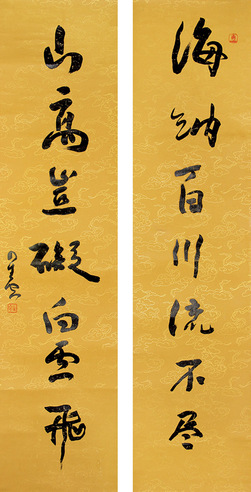 海纳百川流不尽
山高岂碍白云飞